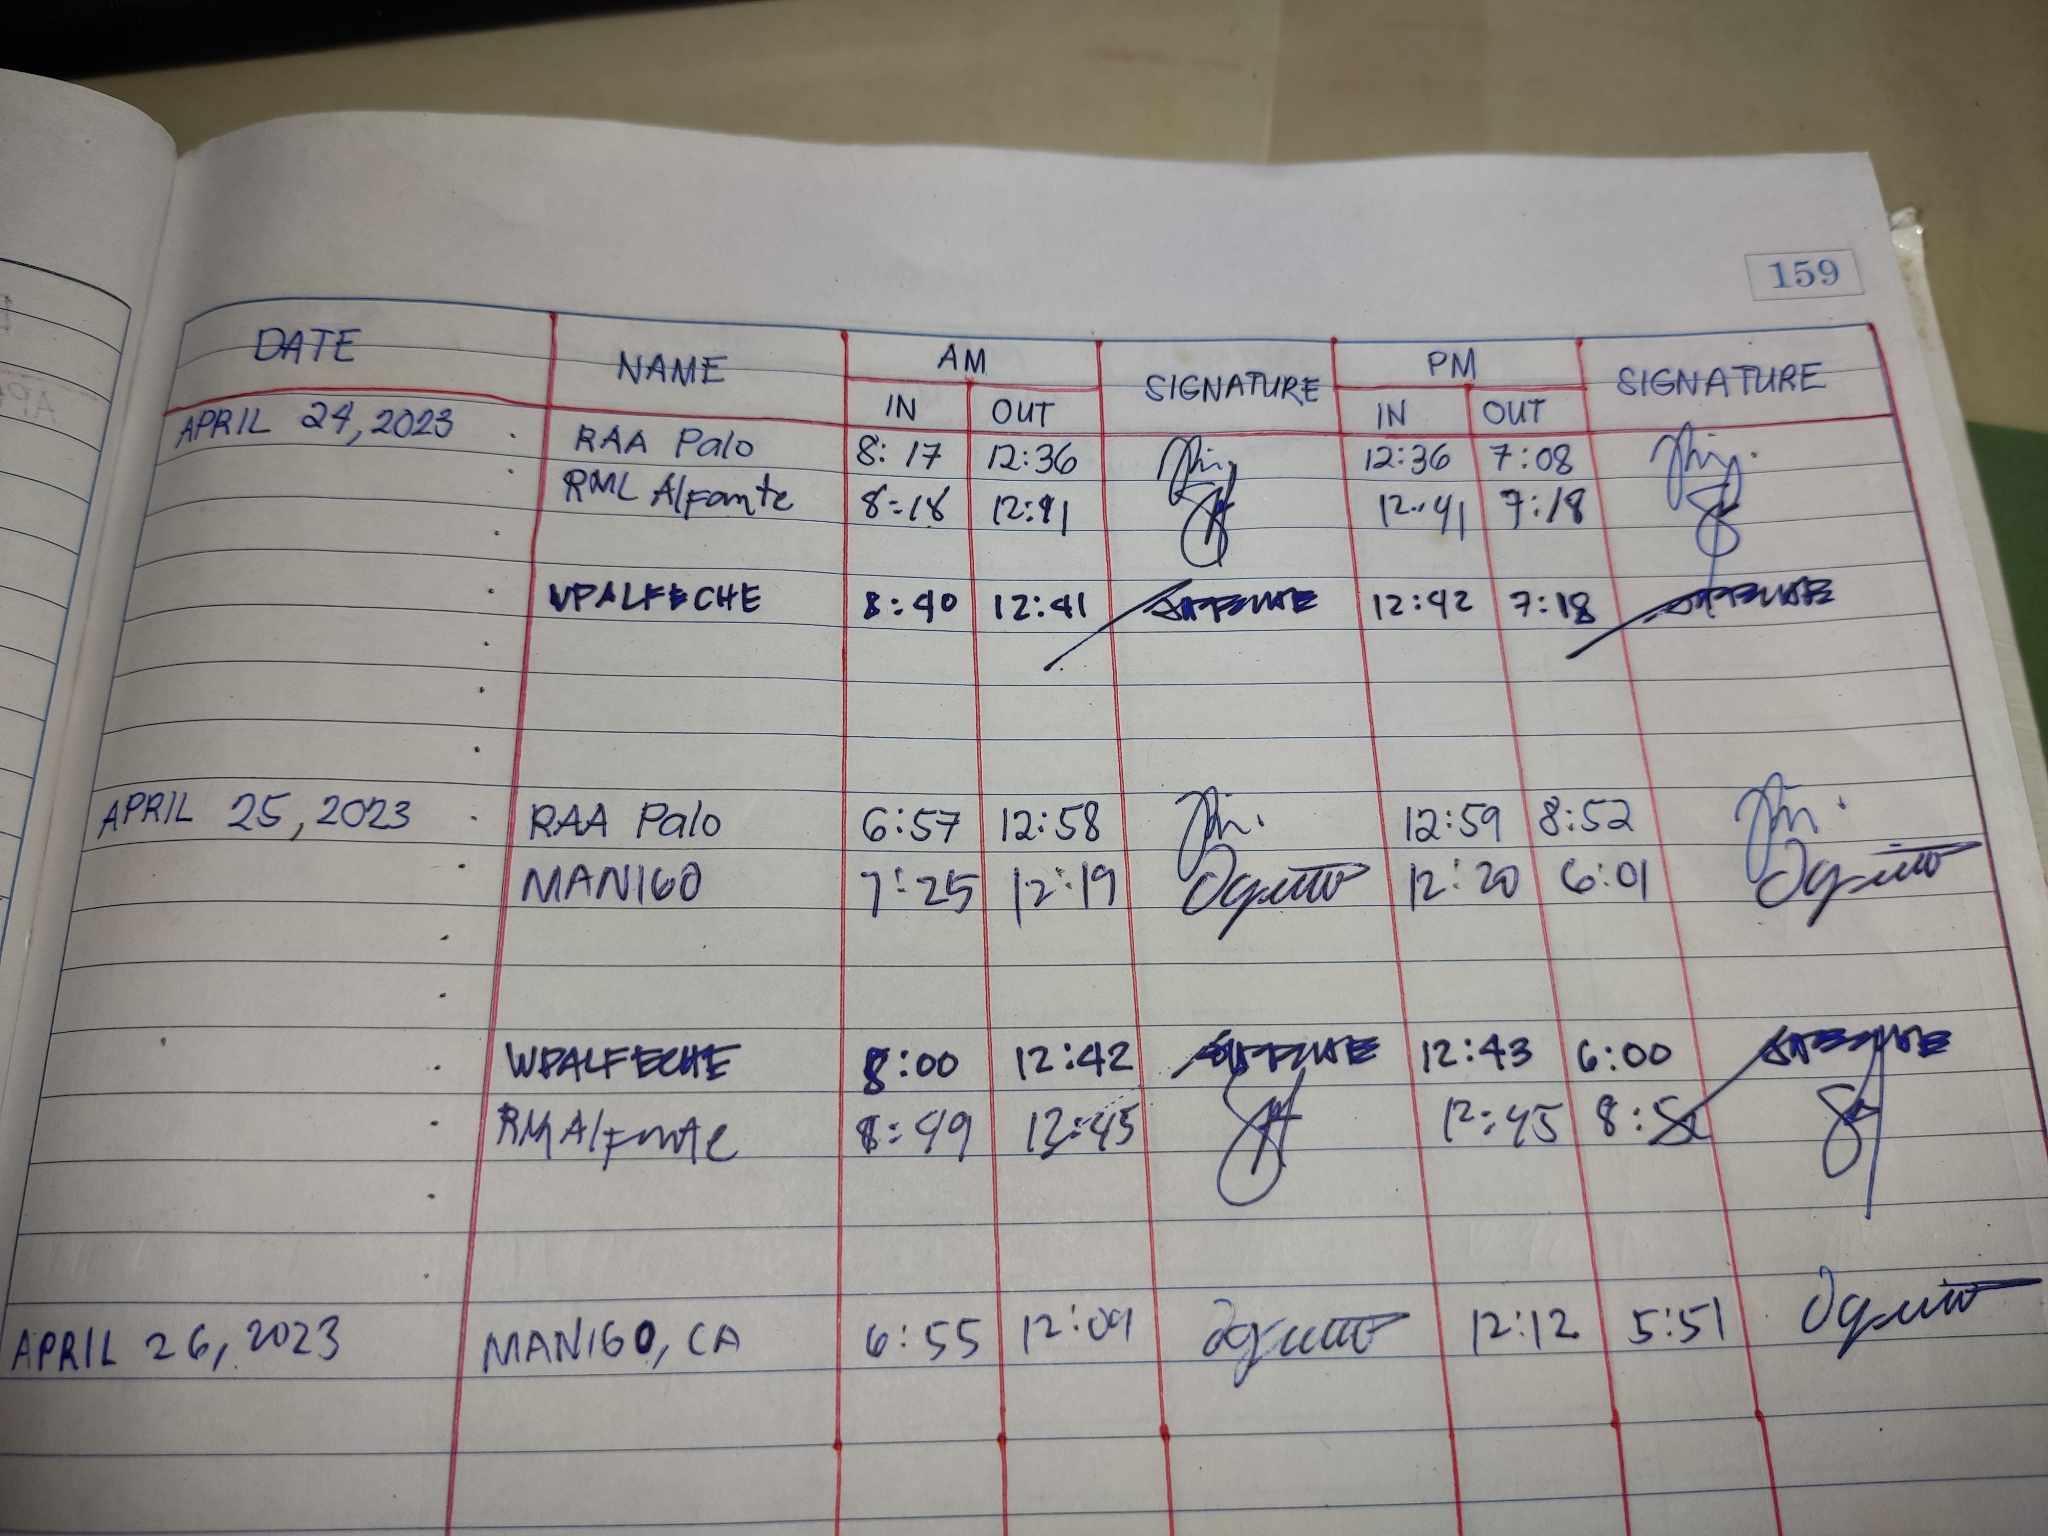 159
DATE NAME AM SIGNATURE PM SIGNATURE
IN OUT IN OUT
APRIL 24, 2023 RAA Palo 8:17 12:36 12:36 7:08
RML Alfante 8:18 12:41 12:41 7:18
WPALFECHE 8:40 12:41 12:42 7:18
APRIL 25, 2023 RAA Palo 6:57 12:58 12:59 8:52
MANIGO 7:25 12:19 12:20 6:01
WPALFECHE 8:00 12:42 12:43 6:00
RM Alfante 8:49 12:45 12:45
APRIL 26, 2023 MANIGO, CA 6:55 12:09 12:12 5:51